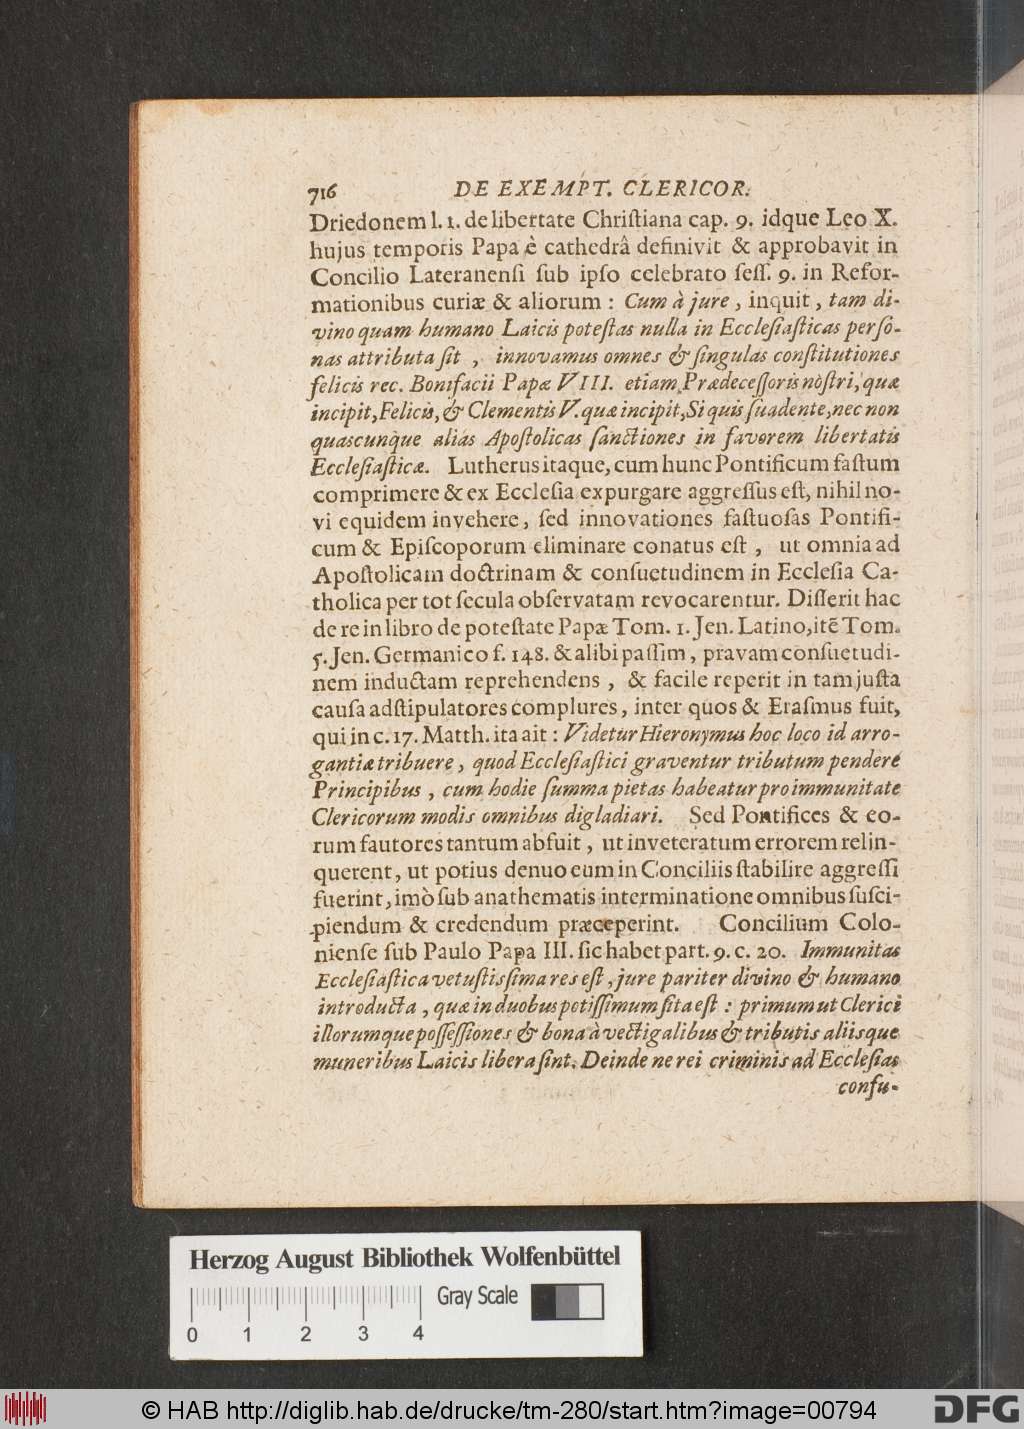 716 DE EXEMPT. CLERICOR.
Driedonem l. 1. de libertate Chriſtiana cap. 9. idque Leo X.
hujus temporis Papa è cathedrâ definivit & approbavit in
Concilio Lateranenſi ſub ipſo celebrato ſeſſ. 9. in Refor-
mationibus curiæ & aliorum : Cum à jure , inquit , tam di-
vino quam humano Laicis poteſtas nulla in Eccleſiaſticas perſo-
nas attributa ſit , innovamus omnes & ſingulas conſtitutiones
felicis rec. Bonifacii Papæ VIII. etiam Prædeceſſoris noſtri, quæ
incipit, Felicis, & Clementis V. quæ incipit, Si quis ſuadente, nec non
quascunque alias Apoſtolicas ſanctiones in favorem libertatis
Eccleſiaſticæ. Lutherus itaque, cum hunc Pontificum faſtum
comprimere & ex Eccleſia expurgare aggreſſus eſt, nihil no-
vi equidem invehere, ſed innovationes faſtuoſas Pontifi-
cum & Epiſcoporum eliminare conatus eſt , ut omnia ad
Apoſtolicam doctrinam & conſuetudinem in Eccleſia Ca-
tholica per tot ſecula obſervatam revocarentur. Diſſerit hac
de re in libro de poteſtate Papæ Tom. 1. Jen. Latino, itē Tom.
5. Jen. Germanico f. 148. & alibi paſſim, pravam conſuetudi-
nem inductam reprehendens , & facile reperit in tam juſta
cauſa adſtipulatores complures, inter quos & Eraſmus fuit,
qui in c. 17. Matth. ita ait : Videtur Hieronymus hoc loco id arro-
gantiæ tribuere, quod Eccleſiaſtici graventur tributum pendere
Principibus , cum hodie ſumma pietas habeatur pro immunitate
Clericorum modis omnibus digladiari. Sed Pontifices & eo-
rum fautores tantum abfuit , ut inveteratum errorem relin-
querent, ut potius denuo eum in Conciliis ſtabilire aggreſſi
fuerint, imò ſub anathematis interminatione omnibus ſuſci-
piendum & credendum præceperint. Concilium Colo-
nienſe ſub Paulo Papa III. ſic habet part. 9. c. 20. Immunitas
Eccleſiaſtica vetuſtiſſima res eſt, jure pariter divino & humano
introducta , quæ in duobus potiſſimum ſita eſt : primum ut Clerici
illorumque poſſeſſiones & bona à vectigalibus & tributis aliisque
muneribus Laicis libera ſint. Deinde ne rei criminis ad Eccleſias
confu-
Herzog August Bibliothek Wolfenbüttel
Gray Scale
0 1 2 3 4
© HAB http://diglib.hab.de/drucke/tm-280/start.htm?image=00794
DFG